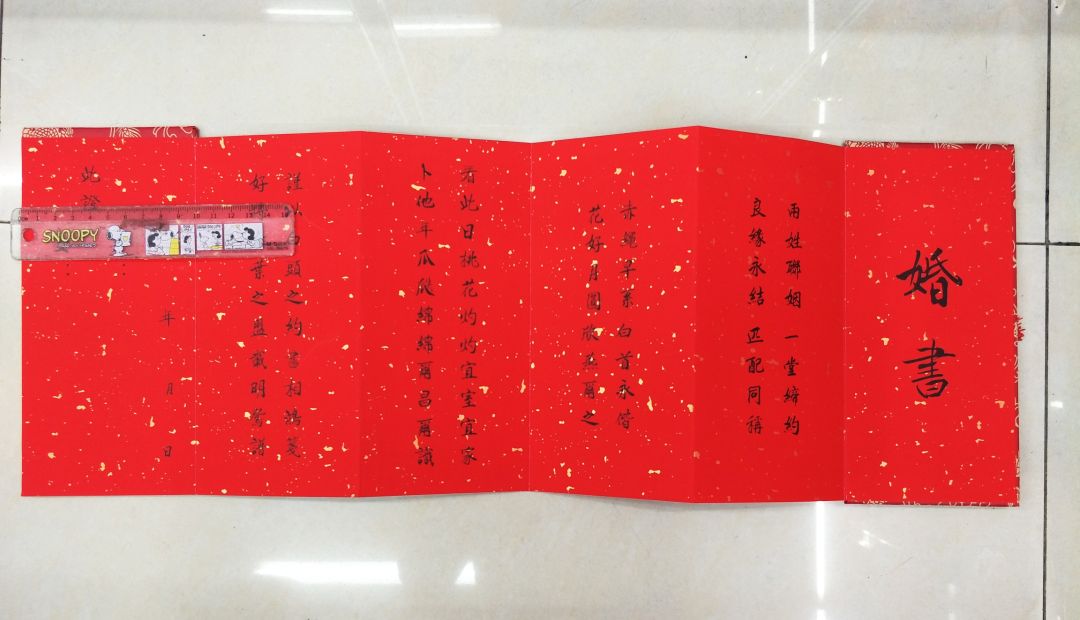 婚書
兩姓聯姻 一堂締約
良緣永結 匹配同稱
赤繩早系 白首永偕
花好月圓 欣燕爾之
看此日桃花灼灼宜室宜家
卜他年瓜瓞綿綿爾昌爾熾
謹以白頭之約書相鴻箋
好葉之盟載明鴛譜
此證
年 月 日
SNOOPY